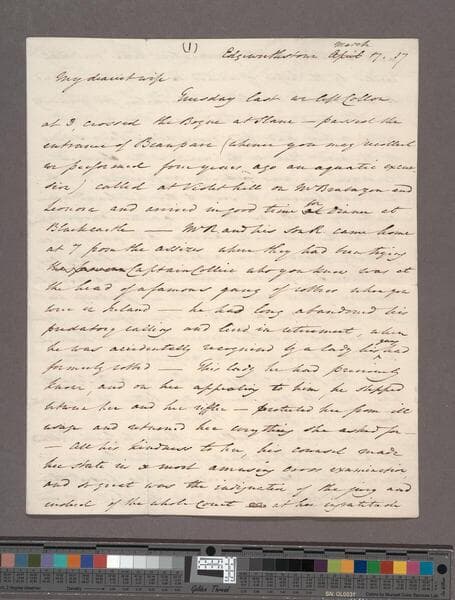 (1)
Edgeworthstown March April 17. 37
My dearest wife
Tuesday last we left Collon
at 3, crossed the Boyne at Slane – passed the
entrance of Beaupare (whence you may recollect
we performed four years ago an aquatic excur
sion) called at Violet hill on Mr Brabazon and
Leonora and arrived in good time for at Dinner at
Blackcastle — Mr R and his son R came home
at 7 from the assizes where they had been trying
Captain Collier who you know was at
the head of a famous gang of robbers when you
were in Ireland — he had long abandoned his
predatory calling and lived in retirement, when
he was accidentally recognised by a lady his gang had
formerly robbed — This lady he had previously
known, and on her appealing to him, he stepped
between her and her rifler — protected her from ill
usage and returned her everything she asked for –
– All his kindness to her, his counsel made
her state in a most amusing cross examination
and so great was the indignation of the jury and
indeed of the whole court at her ingratitude
Golden Thread